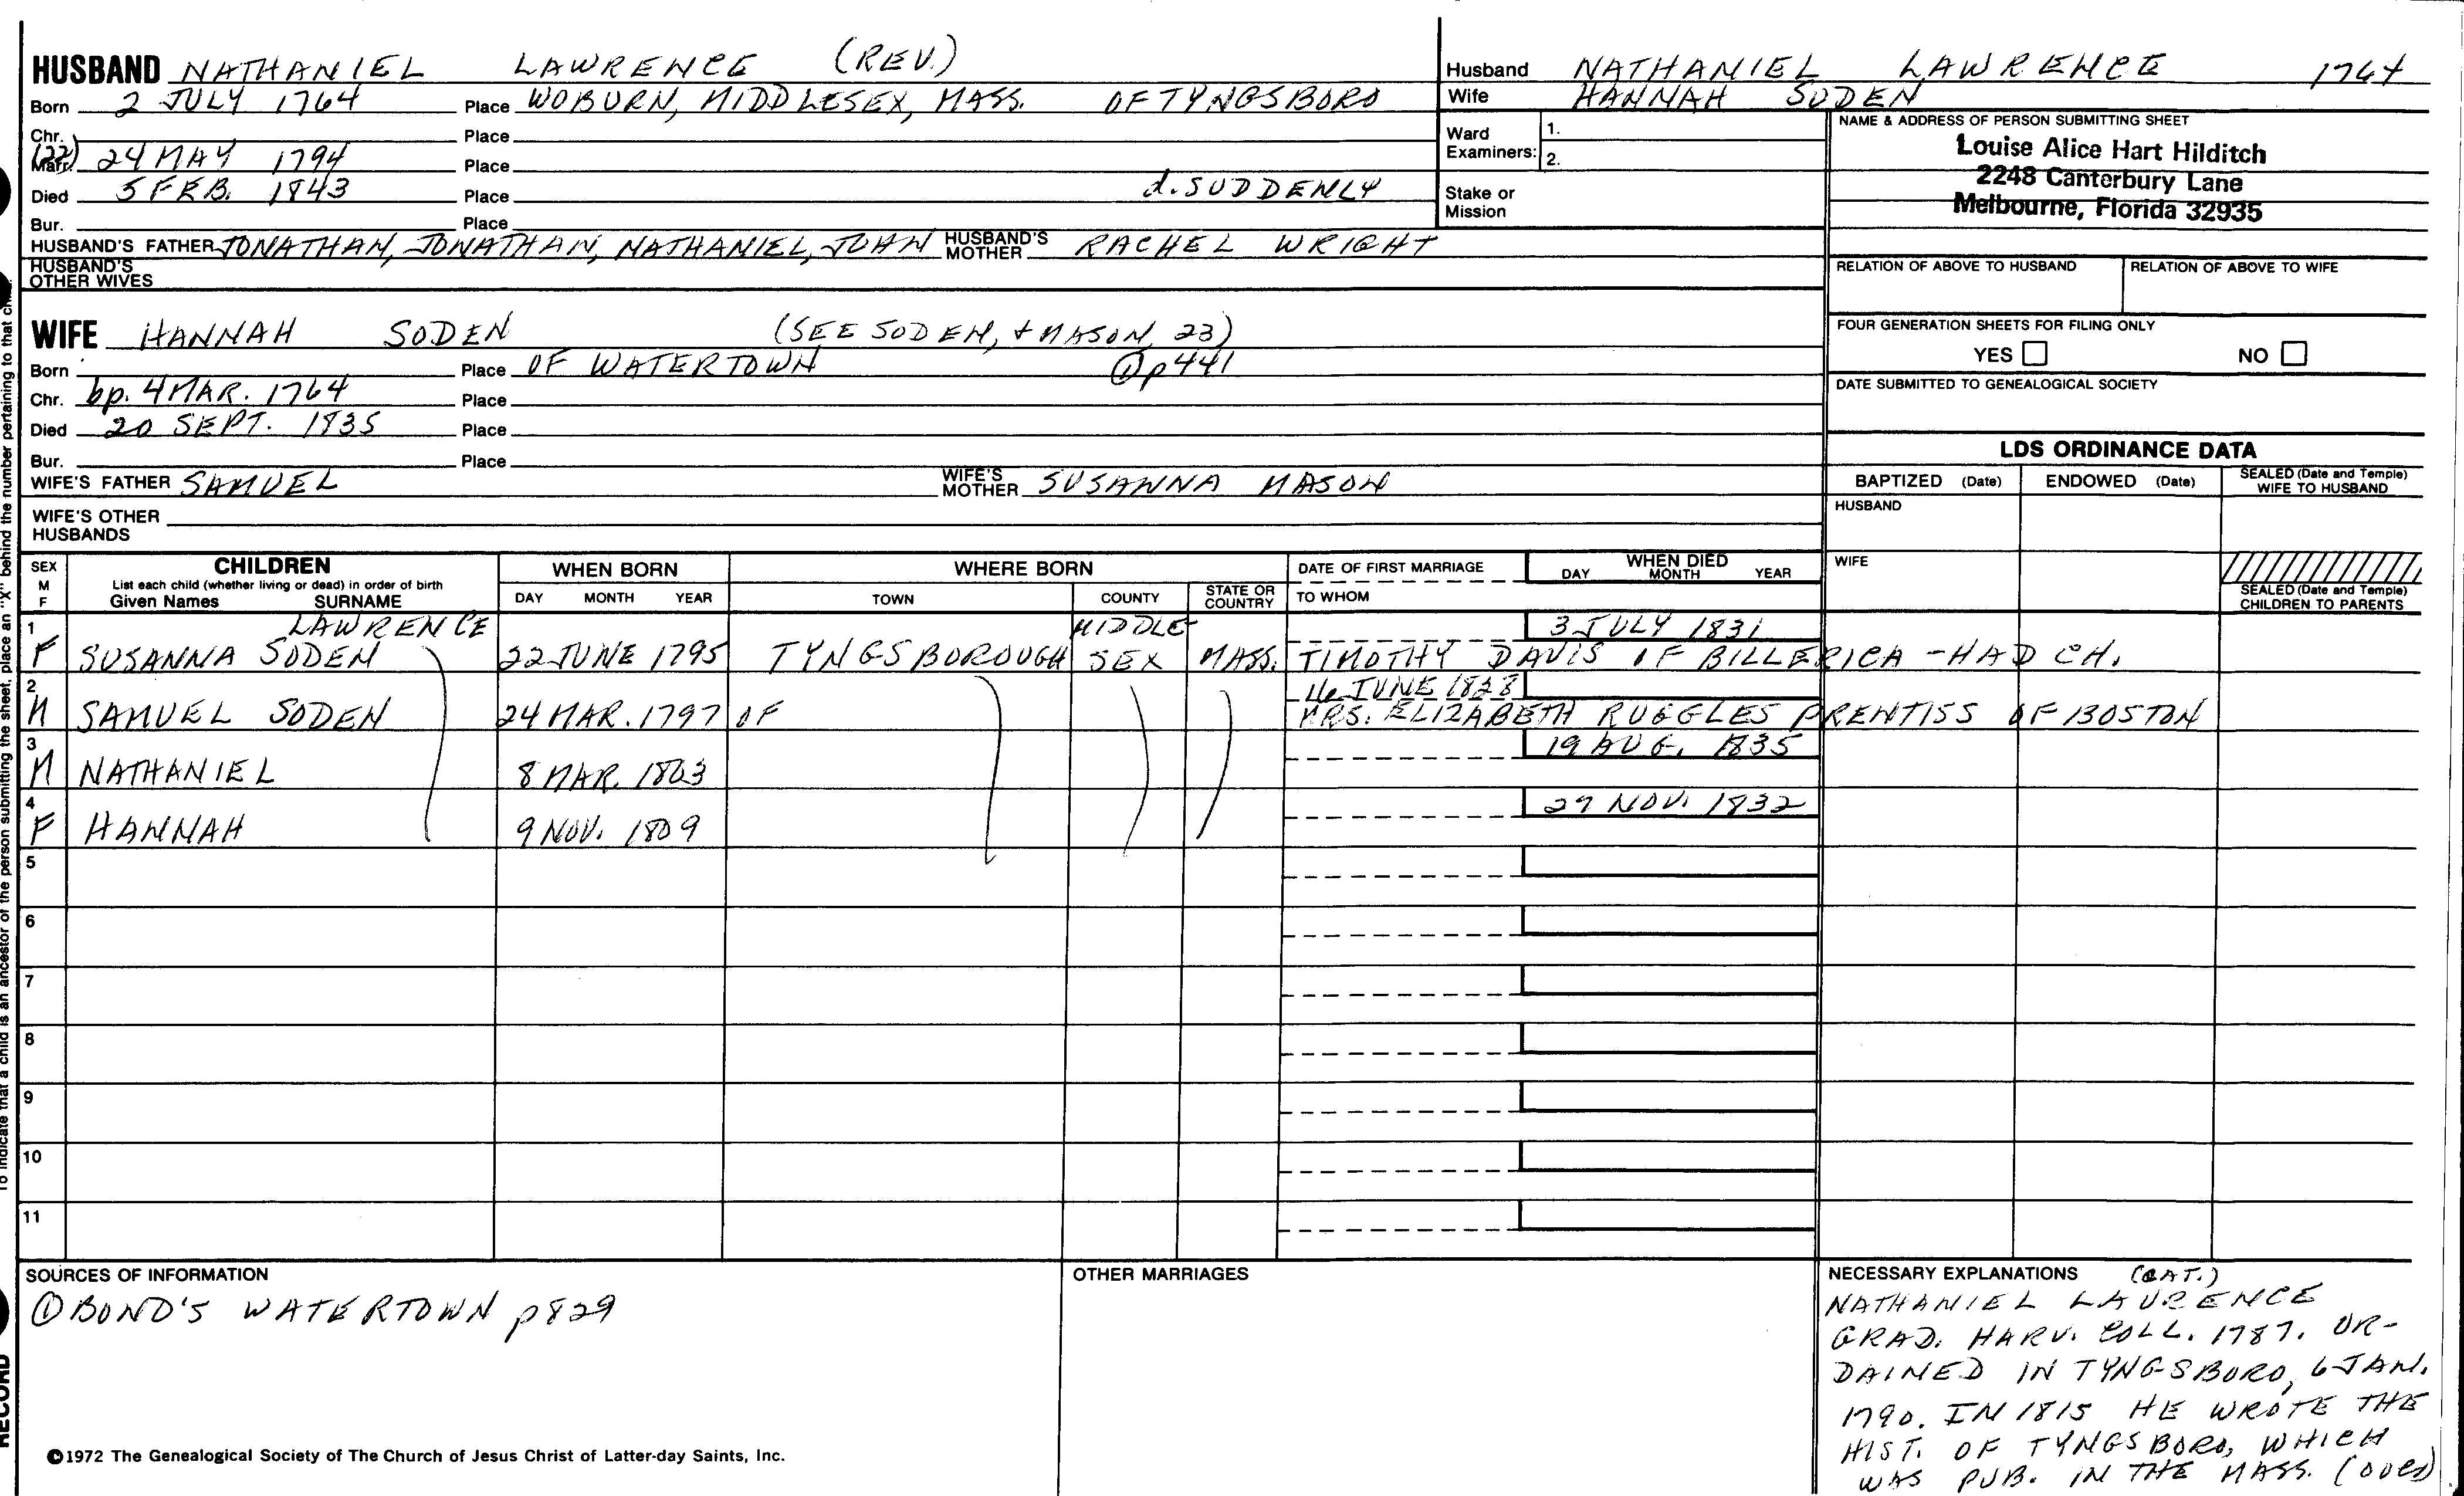 HUSBAND NATHANIEL LAWRENCE (REV.)
Born 2 JULY 1764 Place WOBURN, MIDDLESEX, MASS. OF TYNGSBORO
Chr. Place
(22) Marr. 24 MAY 1794 Place
Died 5 FEB. 1843 Place d. SUDDENLY
Bur. Place
HUSBAND'S FATHER JONATHAN, JONATHAN, NATHANIEL, JOHN HUSBAND'S MOTHER RACHEL WRIGHT
HUSBAND'S
OTHER WIVES
WIFE HANNAH SODEN (SEE SODEN, + MASON, 23)
Born Place OF WATERTOWN ① p441
Chr. bp. 4 MAR. 1764 Place
Died 20 SEPT. 1835 Place
Bur. Place
WIFE'S FATHER SAMUEL WIFE'S MOTHER SUSANNA MASON
WIFE'S OTHER
HUSBANDS
Husband NATHANIEL LAWRENCE 1764
Wife HANNAH SODEN
Ward
Examiners: 1.
2.
Stake or
Mission
NAME & ADDRESS OF PERSON SUBMITTING SHEET
Louise Alice Hart Hilditch
2248 Canterbury Lane
Melbourne, Florida 32935
RELATION OF ABOVE TO HUSBAND RELATION OF ABOVE TO WIFE
FOUR GENERATION SHEETS FOR FILING ONLY
YES NO
DATE SUBMITTED TO GENEALOGICAL SOCIETY
LDS ORDINANCE DATA
BAPTIZED (Date) ENDOWED (Date) SEALED (Date and Temple) WIFE TO HUSBAND
HUSBAND
WIFE
SEALED (Date and Temple)
CHILDREN TO PARENTS
SEX
M
F
CHILDREN
List each child (whether living or dead) in order of birth
Given Names SURNAME
WHEN BORN
DAY MONTH YEAR
WHERE BORN
TOWN COUNTY STATE OR COUNTRY
DATE OF FIRST MARRIAGE
TO WHOM
WHEN DIED
DAY MONTH YEAR
1 LAWRENCE MIDDLE- 3 JULY 1831
F SUSANNA SODEN 22 JUNE 1795 TYNGSBOROUGH SEX MASS. TIMOTHY DAVIS OF BILLERICA - HAD CH.
2 16 JUNE 1828
M SAMUEL SODEN 24 MAR. 1797 OF MRS. ELIZABETH RUGGLES PRENTISS OF BOSTON
3 19 AUG. 1835
M NATHANIEL 8 MAR. 1803
4 27 NOV. 1832
F HANNAH 9 NOV. 1809
5
6
7
8
9
10
11
SOURCES OF INFORMATION
① BOND'S WATERTOWN p829
©1972 The Genealogical Society of The Church of Jesus Christ of Latter-day Saints, Inc.
OTHER MARRIAGES
NECESSARY EXPLANATIONS (CAT.)
NATHANIEL LAURENCE
GRAD. HARV. COLL. 1787. OR-
DAINED IN TYNGSBORO, 6 JAN.
1790. IN 1815 HE WROTE THE
HIST. OF TYNGSBORO, WHICH
WAS PUB. IN THE MASS. (over)
To indicate that a child is an ancestor of the person submitting the sheet, place an "X" behind the number pertaining to that child.
RECORD